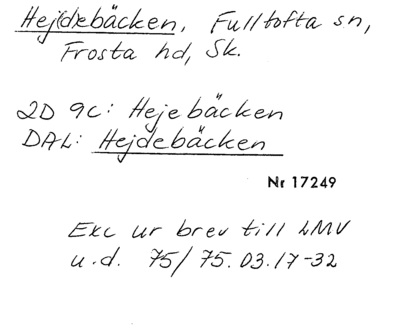 Hejdebäcken, Fulltofta sn,
Frosta hd, Sk.
2D 9C: Hejebäcken
DAL: Hejdebäcken
Nr 17249
Exc ur brev till LMV
u.d. 75/75.03.17-32